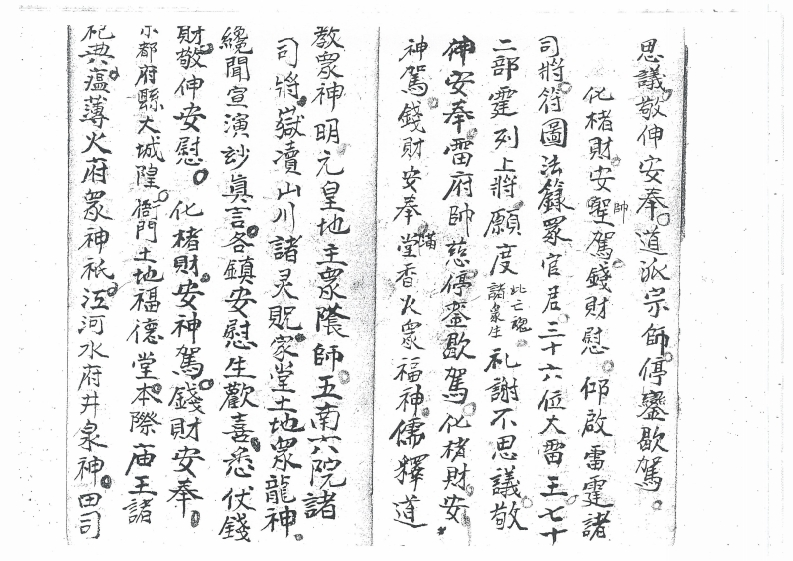 思議敬伸安奉道派宗師停鑾歇駕
化楮財安聖帥駕錢財慰仰啟雷霆諸
司將符圖法籙眾官君三十六位大雷王七十
二部霆列上將願度此亡魂諸眾生礼謝不思議敬
伸安奉雷府帥慈停鑾歇駕化楮財安
神駕錢財安奉滿堂香火眾福神儒釋道
教眾神明元皇地主眾隂師五南六院諸
司將嶽瀆山川諸灵貺家堂土地眾龍神
纔聞宣演玅真言各鎮安慰生歡喜悉伏錢
財敬伸安慰化楮財安神駕錢財安奉
尒都府縣大城隍衙門土地福德堂本際庙王諸
祀典瘟薄火府眾神祇江河水府井泉神田司